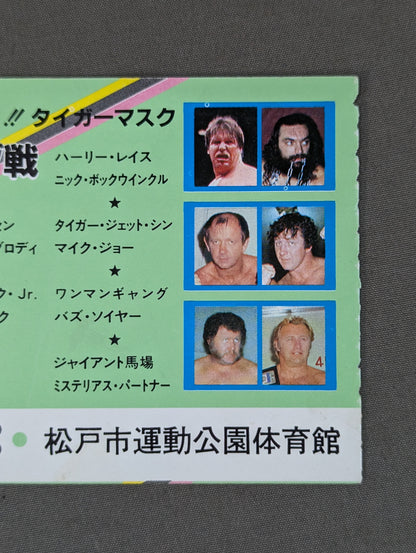 !! タイガーマスク
戦
ハーリー・レイス
ニック・ボックウインクル
★
セン タイガー・ジェット・シン
ブロディ マイク・ジョー
★
ク・Jr. ワンマンギャング
ク バズ・ソイヤー
★
ジャイアント馬場
ミステリアス・パートナー
● 松戸市運動公園体育館
4